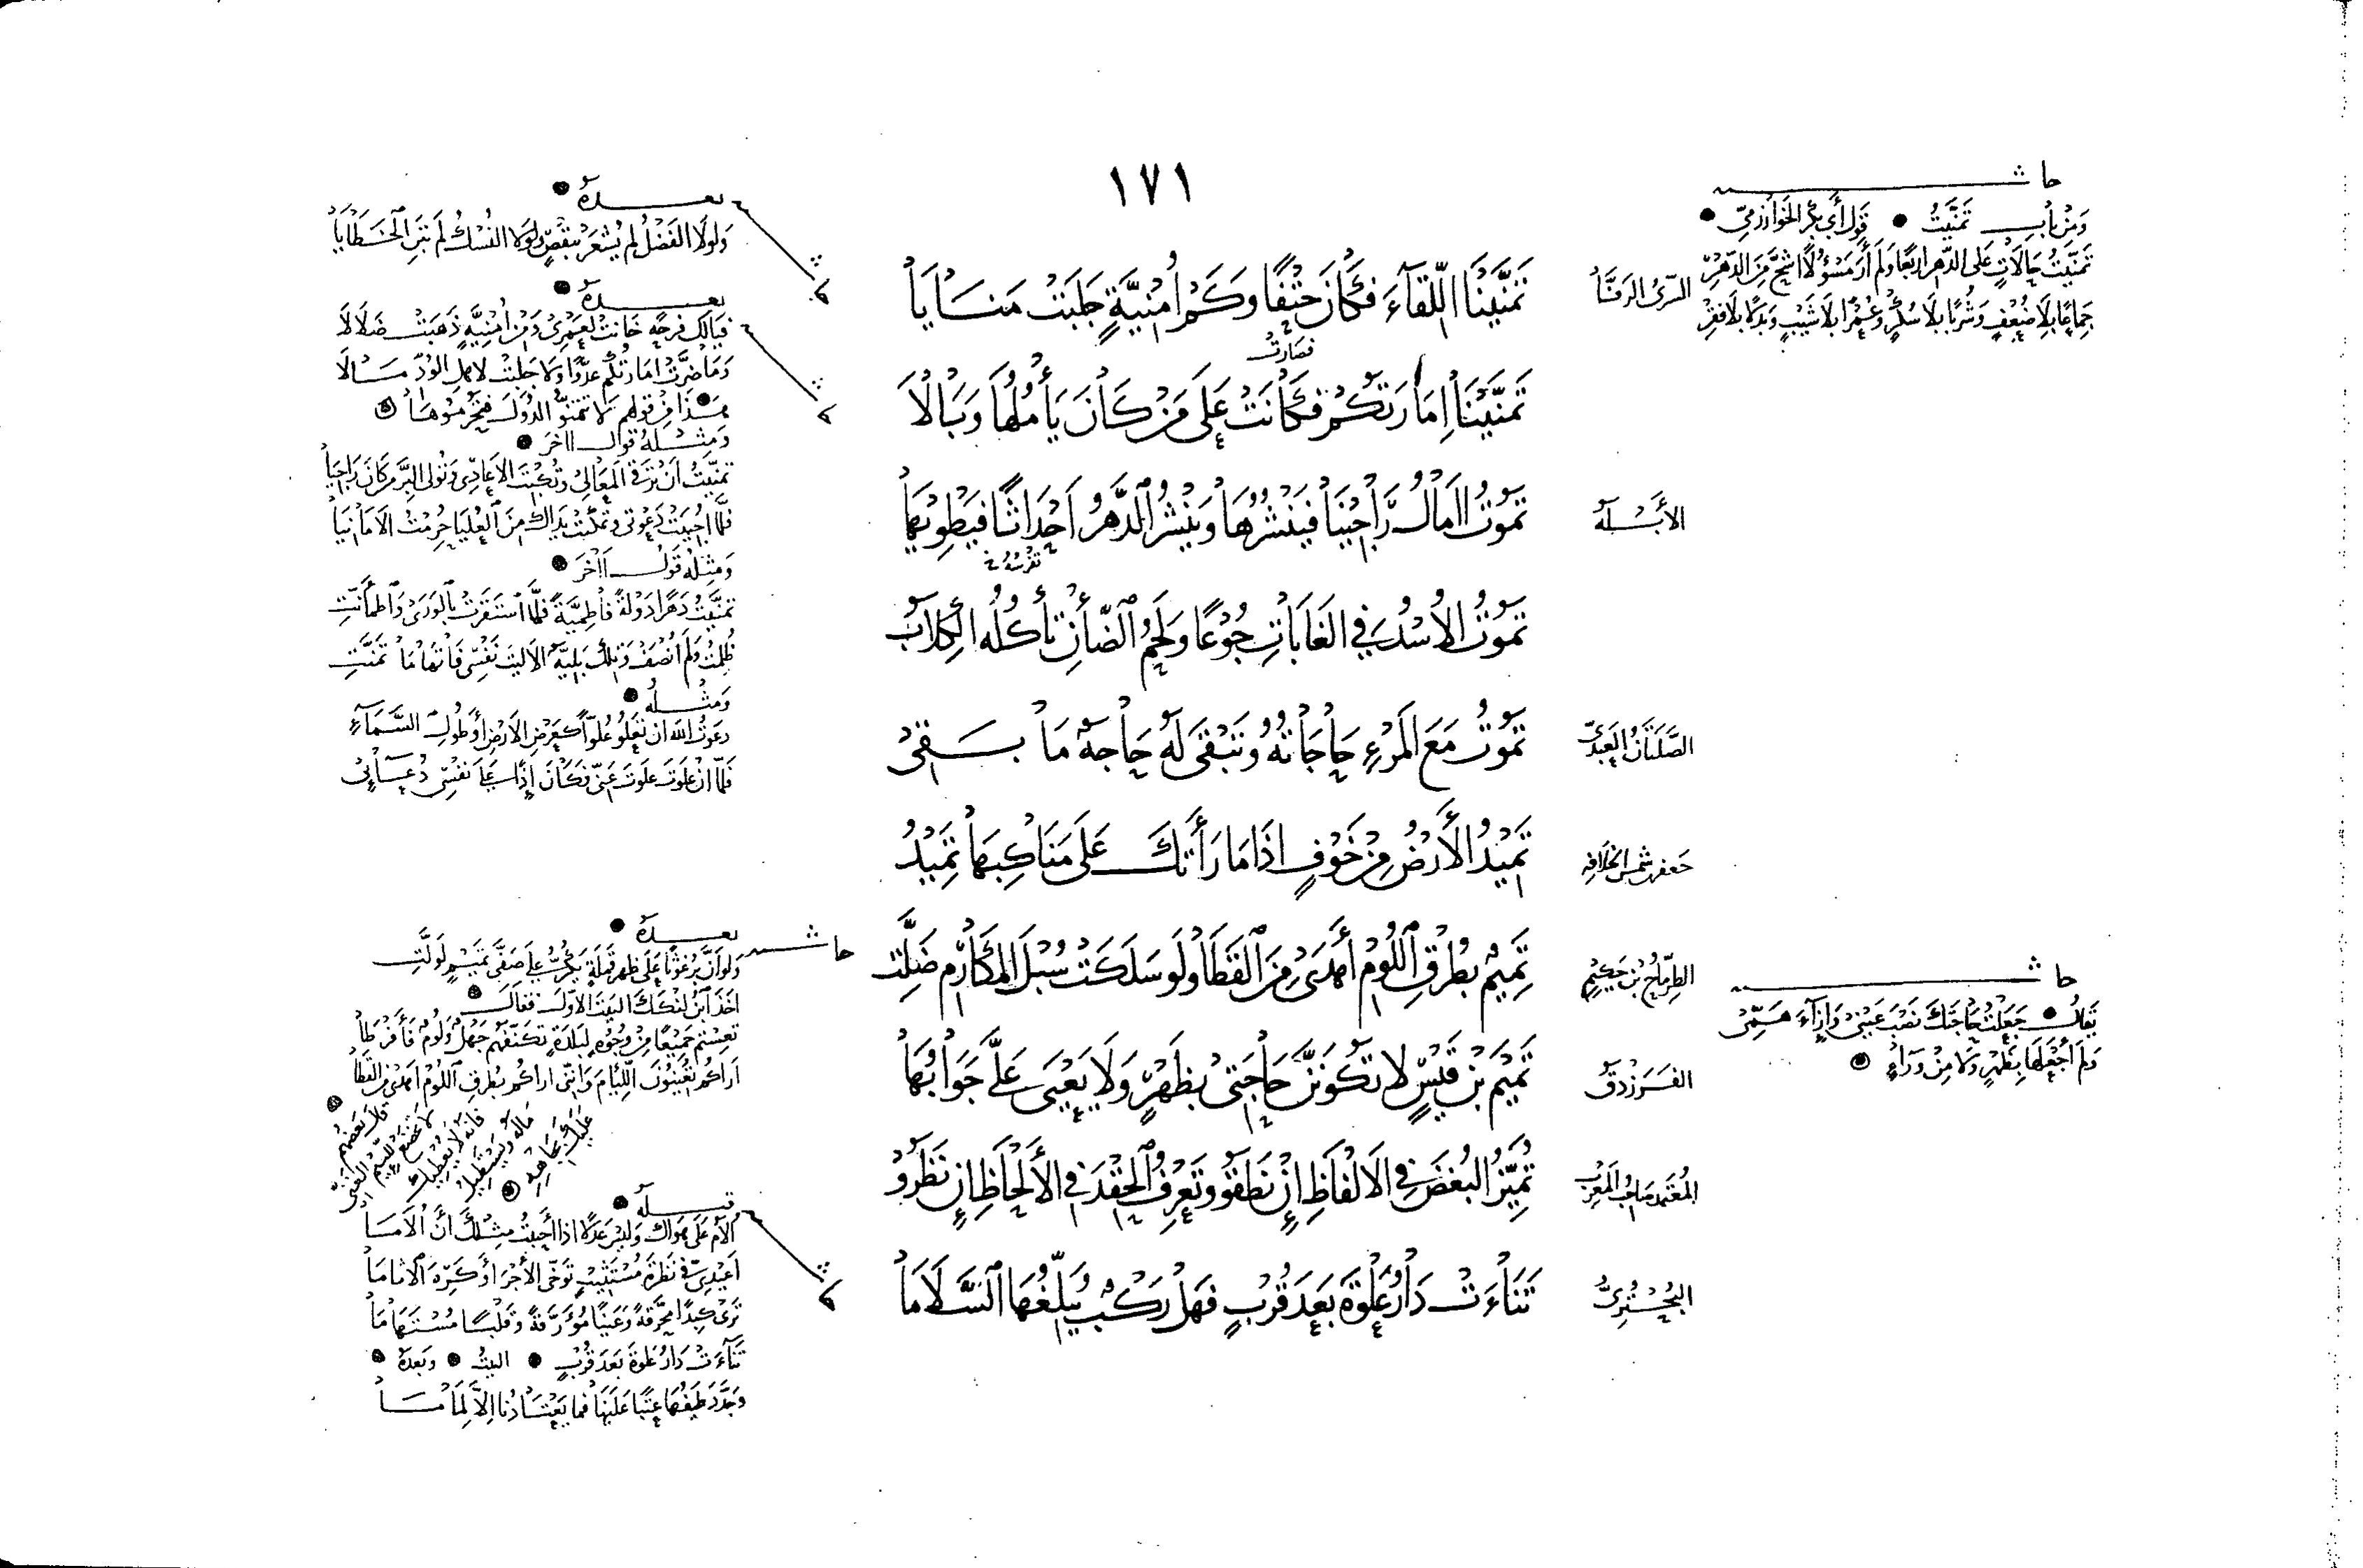 ١٧١
حاشـــية
وَمِنْ بابِ تَمَنَّيْتُ • قَول أَبي بكرٍ الخَوارزميّ •
تَمَنَّيْتُ حَالَاتٍ عَلى الدَّهرِ اربعًا وَلَم أرَ مَسْؤُولًا اشحَّ مِنَ الدَّهرِ
جِمَاعًا بِلَا ضُعْفٍ وَشُربًا بِلَا سُكْرٍ وَعُمْرًا بِلَا شَيْبٍ وَبَذلًا بِلَا فقرِ
السَّرىُّ الرفَّاءُ
تَمَنَّيْنَا اللّقَآءَ فَكَانَ حَتْفًا وَكَمْ اُمْنِيَّةٍ جَلَبَتْ مَنَايَا
فصَارتْ
تَمَنَّيْنَا اِمَارَتَكُمْ فَكَانَتْ عَلَى مَنْ كَانَ يَأْمُلُهَا وَبَالَا
الأبْلَهُ
تَمُوتُ اامَالُ رَاجِيْنَا فَيَنْشُرُهَا وَيَنْشُرُ الدَّهرُ اَحْدَاثًا فَيَطْوِيْهَا
تَمُوتُ الأُسْدُ فِي الغَابَاتِ جُوْعًا وَلَحْمُ الضَّأْنِ تَأْكُلُه الكِلَابُ
الصَّلَتَانُ العَبْدِىّ
تَمُوتُ مَعَ المَرْءِ حَاجَاتُهُ وَتَبْقَى لَهُ حَاجةٌ مَا بَقِىْ
جَعفر شمس الخلَافه
تَمِيْدُ الأَرْضُ مِنْ خَوْفٍ اذَا مَا رَأَتكَ عَلَى مَنَاكِبِهَا تَمِيْدُ
الطِرِّمَّاحُ بْن حَكِيمٍ
تَمِيْمٌ بِطُرْقِ اللُومِ أَهدَىْ مِنَ القَطَا وَلَو سَلَكَتْ سُبْلَ المَكَارِمِ ضَلَّتِ
الفَرَزْدقُ
تَمِيْمَ بْنَ قَيْسٍ لا تَكُونَنَّ حَاجَتىْ بظَهْرٍ وَلَا يَعْيَى عَلَىَّ جَوَابُهَا
المُعْتَمد صَاحبُ المَغرِبِ
تُمَيِّزُ البُغضَ فِي الَالْفَاظِ إِنْ نَطَقُو وَتَعرِفُ الحِقْدَ فِي الأَلْحَاظِ اِنْ نَظَرُوْ
البُحْتُرِىُّ
تَنَاءَتْ دَارُ عَلْوَةَ بَعدَ قُرْبٍ فَهَل رَكْبٌ يُبَلِّغُهَا السَّلَامَا
حاشـــية
يُقالُ • جَعَلْتُ حَاجتَكَ نصْبَ عَيْنىْ وَاِزآءَ هَمِّىْ
وَلَم أَجْعَلهَا بِظَهْرٍ وَلَا مِنْ وَرآءٍ
بعـــدهُ •
وَلَولَا الفَضْلُ لَم يُشْعَرْ بنقصٍ وَلَولا النُسْكُ لَم تبنِ الخَطَايَا
بعـــدهُ •
فَيَالَكِ فرحةٍ خَانتْ لعَمْرِىْ وَمِنْ اُمْنِيَّةٍ ذَهَبَتْ ضَلَالَا
وَمَا ضَرَّتْ امَارتُكُم عدُوًّا وَلَا جَلبتْ لاهلِ الوُدِّ مَـالَا
هـذَا مِن قولهم لَا تتمنوُّا الدُوَلَ فتُحْرَمُوهَـا
وَمثـلهُ قولُ ااخرَ •
تمنّيتُ أَنْ تَرقَى المَعَالِىْ وَتُكْبِتَ الاعَادِىْ وَتُولى البِرَّ مَن كَانَ رَاجيَا
فلمَّا اجُيبَتْ دَعْوتى وتمكّنَتْ يَدَاك مِنَ العُلْيَا حُرِمْتُ الامَانيَا
وَمثلهُ قَولُ ااخَرَ •
تمنَّيْتُ دَهرًا دَوْلةً فاطِميَّةً فَلمَّا استَقرَّتْ بالوَرَىْ وَاطمأنّتِ
ظُلِمْتُ وَلَم أُنصَفْ وَتِلكَ بَليَّةٌ الا ليتَ نَفْسِى فَاتَهَا مَا تَمَنَّتِ
وَمثـلهُ •
دعَوتُ اللهَ ان تعَلُو عُلُوًّا كعَرْضِ الأَرضِ أَو طُولِ السَّمَاءِ
فَلَمَّا انْ عَلَوتَ علَوتَ عَنّى فَكَانَ اِذًا عَلَى نفسِى دُعَـائِىْ
بعـــدهُ •
حاشـــية
وَلَو أَنَّ بُرْغُوثًا عَلَى ظهرِ قَملَةٍ يَكُرُّ عَلَى صَفَّىْ تَمِيمٍ لَوَلَّتِ
اخَذَ ابْنُ لنكَكَ البَيْتَ الأَوّلَ فَقالَ •
تَعِسْتم جَمِيْعًا مِنْ وُجُوهٍ لبَلدَةٍ تَكَنَّفَهُم جَهْلٌ وَلُومٌ فَأَفْرَطَا
اَراكُم تُعَينُونَ اللِئَامَ وَانّى اراكُم بطُرقِ اللُوم اهدَىْ مِنَ القَطَا
قبـــلهُ •
أُلَامُ عَلَى هَوَاكِ وَليْسَ عَدلًا اذا أَحببْتُ مثلَكِ أَنْ أُلَامَا
اَعِيْدِى فِيَّ نَظْرَةَ مُسْتَثِيبٍ تَوَخَّى الأَجْرَ أَوْ كَرِهَ الاثامَا
تَرَىْ كبِدًا مُحَرَّقةً وَعَيْنًا مُؤَرَّقةً وَقَلبًا مُسْتَهَامَا
تَنَآءَتْ دَارُ عَلوةَ بَعدَ قُرْبٍ • البيتُ • وَبعدهُ •
وَجَدَّدَ طَيفُهَا عتبًا عَلَيْنَا فما يَعتَادُنا اِلَّا لِمَامَـا